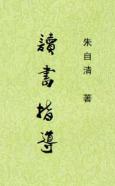 朱自清 著
讀書指導